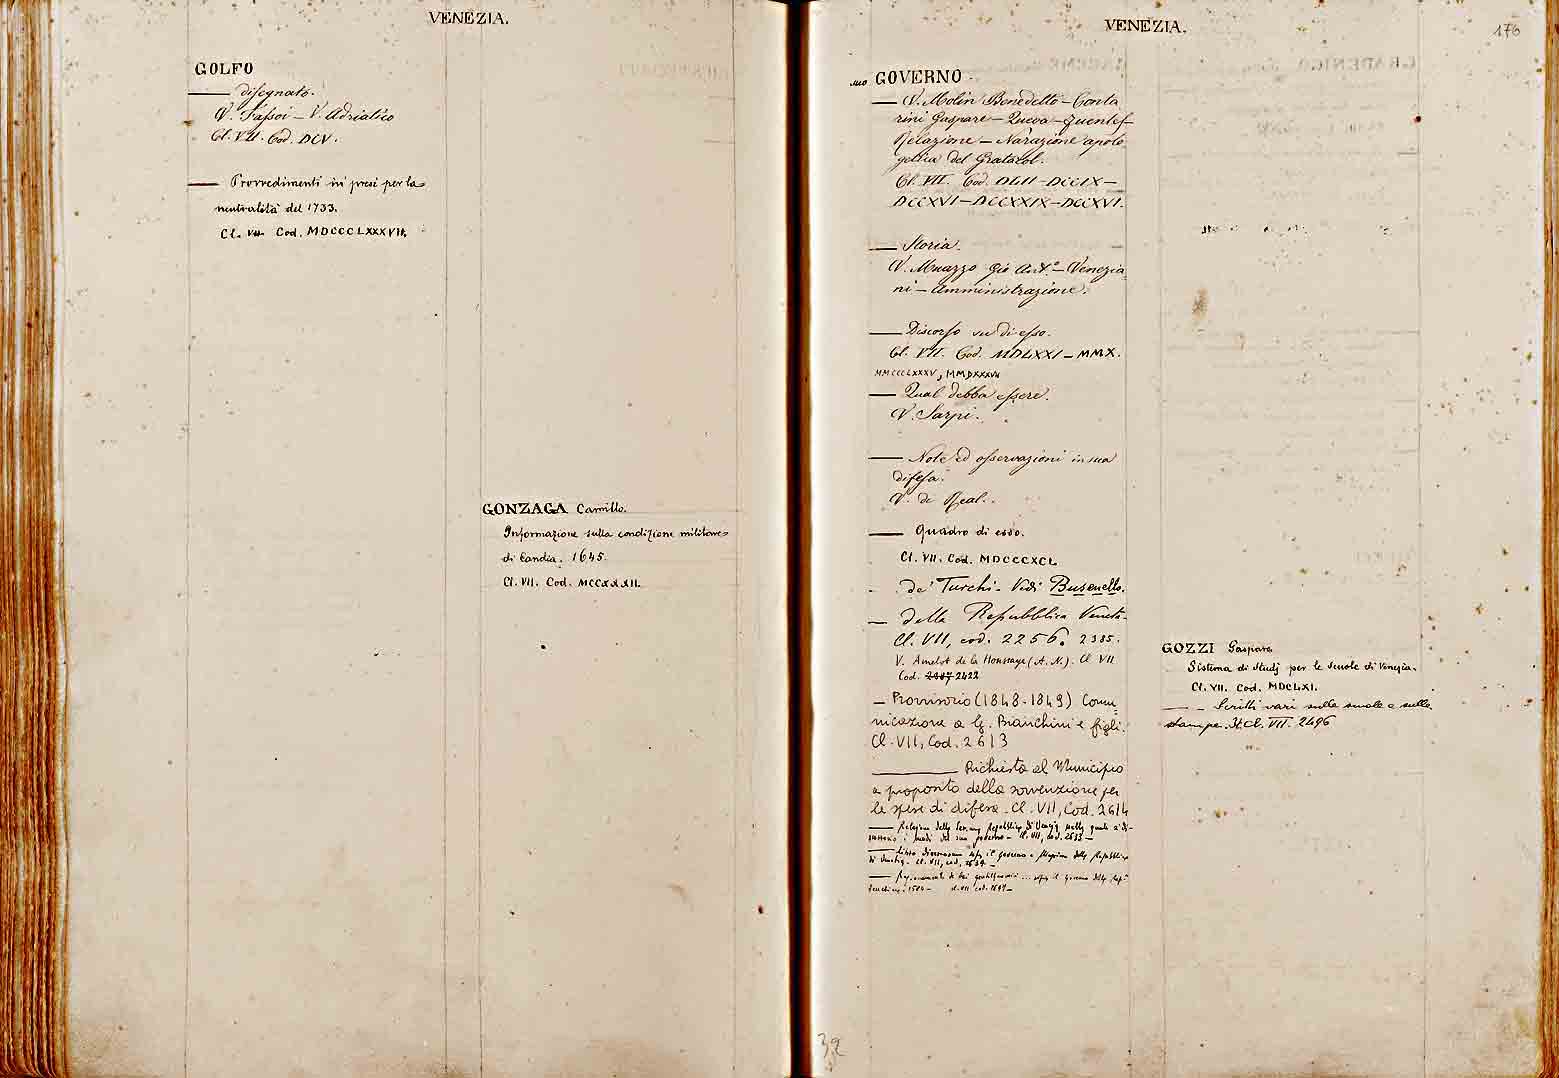 VENEZIA.
GOLFO
disegnato.
V. Fassoi - V. Adriatico
Cl. VII. Cod. DCV.
Provvedimenti in presi per la
neutralità del 1733.
Cl. VII. Cod. MDCCCLXXXVII.
GONZAGA Camillo.
Informazione sulla condizione militare
di Candia. 1645.
Cl. VII. Cod. MCCXXXII.
VENEZIA.
176
suo GOVERNO.
V. Molin Benedetto - Conta
rini Gaspare - Queva -
Relazione - Narazione apolo
getica del Gratarol.
Cl. VII. Cod. DLII - DCCIX -
DCCXVI - DCCXXIX - DCCXVI.
Storia.
V. Muazzo Gio Ant.o - Venezia
ni - Amministrazione.
Discorso su di esso.
Cl. VII. Cod. MDLXXI - MMX.
MMCCCLXXXV, MMDXXXVII
Qual debba essere.
V. Sarpi.
Note ed osservazioni in sua
difesa.
V. de Real.
Quadro di esso.
Cl. VII. Cod. MDCCCXCI.
de' Turchi - Vedi Busenello.
della Repubblica Veneta.
Cl. VII, cod. 2256. 2385.
V. Amelot de la Houssaye (A. N.). Cl VII
Cod. 2422
- Provvisorio (1848-1849) Comu-
nicazione a G. Bianchini e figli.
Cl. VII, Cod. 2613
Richiesta al Municipio
a proposito della sovvenzione per
le spese di difesa. Cl. VII, Cod. 2614
Relazione della Ser.ma Repubblica di Venezia nella quale
suo governo - Cl. VII, cod. 2633 -
il governo e della Repubblica
di Venezia - Cl. VII, cod.
il governo della Rep.a
GOZZI Gaspare
Sistema di Studj per le scuole di Venezia.
Cl. VII. Cod. MDCLXI.
- Scritti vari sulle scuole e sulle
stampe. It. Cl. VII. 2496
32